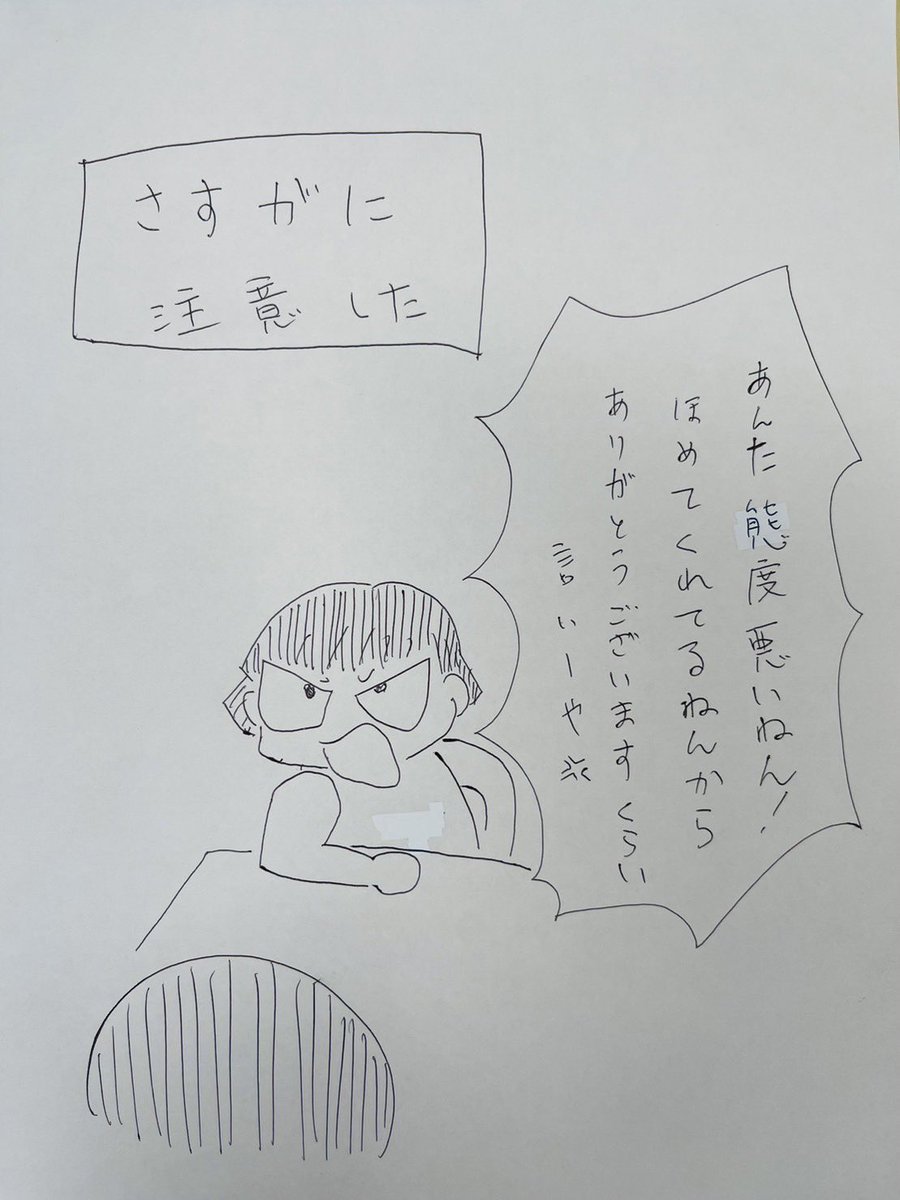 さすがに
注意した
あんた態度悪いねん！
ほめてくれてるねんから
ありがとうございますくらい
言いーや